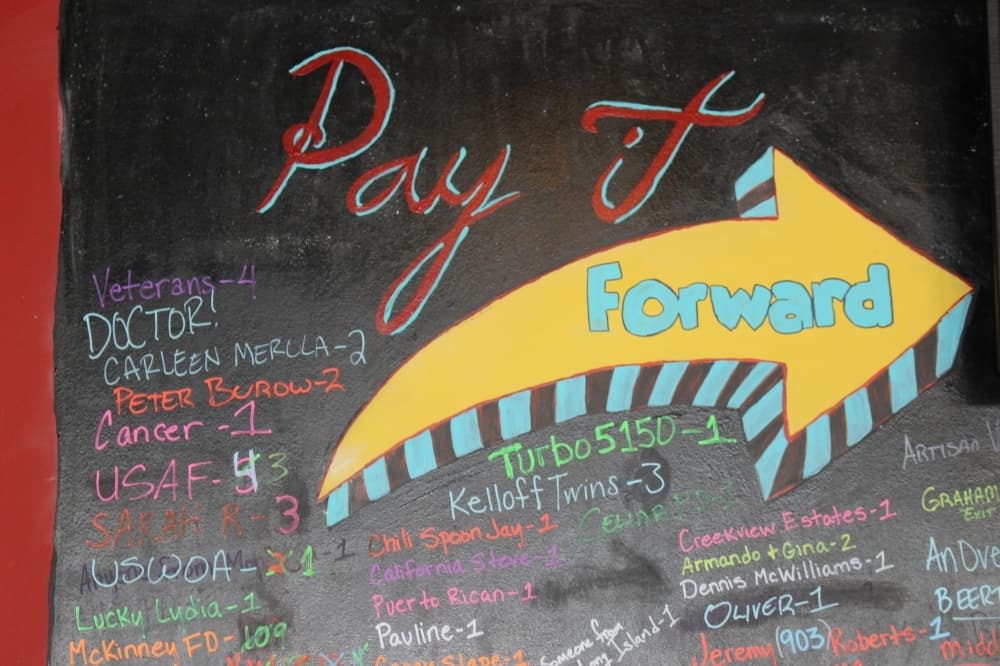 Pay it
Forward
Veterans-4
DOCTOR!
CARLEEN MERCLA-2
PETER BUROW-2
Cancer-1
USAF-
3
SARAH R-3
USWOAL
1
-1
Lucky Ludia-1
McKinney FD-109
Turbo5150-1
Kelloff Twins-3
Chili Spoon Jay-1
California Steve-1
Puerto Rican-1
Pauline-1
Someone from
Long Island-1
Creekview Estates-1
Armando + Gina-2
Dennis McWilliams-1
OLIVER-1
Jeremy (903) Roberts-1
ARTISAN
GRAHAM
EXIT
An Ove
BEER
2
Midd